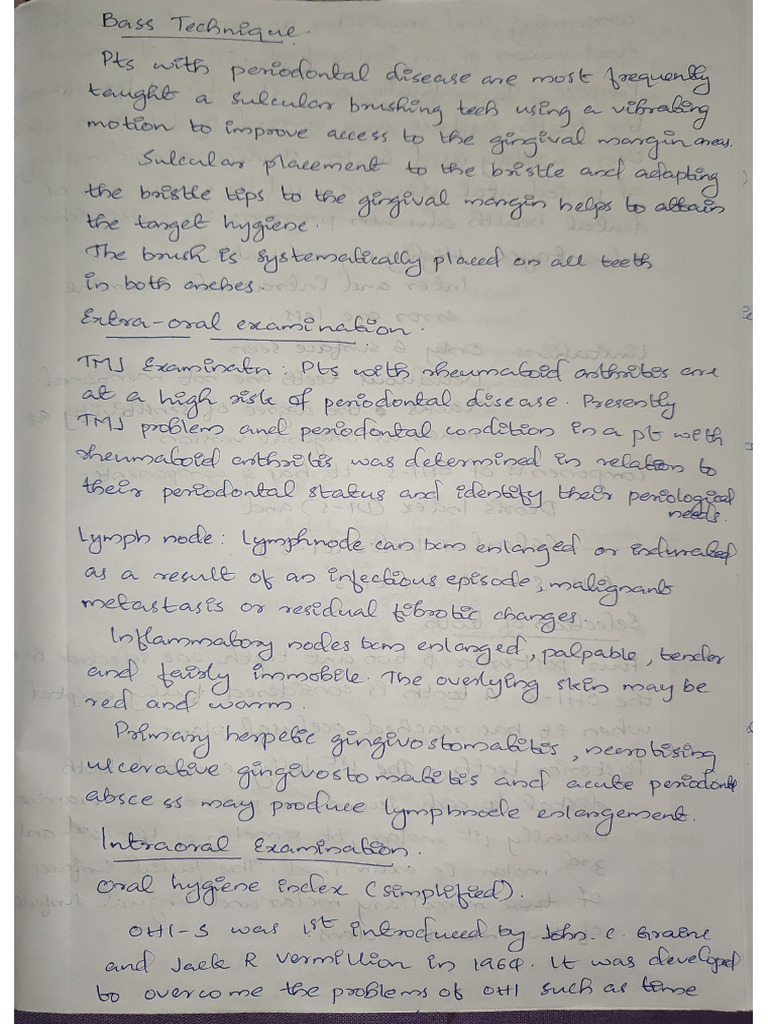 Bass Technique.
Pts with periodontal disease are most frequently
taught a sulcular brushing tech using a vibrating
motion to improve access to the gingival margin areas.
Sulcular placement to the bristle and adapting
the bristle tips to the gingival margin helps to attain
the target hygiene.
The brush is systematically placed on all teeth
in both arches.
Extra-oral examination.
TMJ Examinatn: Pts with rheumatoid arthritis are
at a high risk of periodontal disease. Presently
TMJ problem and periodontal condition in a pt with
rheumatoid arthritis was determined in relation to
their periodontal status and identify their periological
needs.
Lymph node: Lymphnode can bcm enlarged or indurated
as a result of an infectious episode, malignant
metastasis or residual fibrotic changes.
Inflammatory nodes bcm enlarged, palpable, tender
and fairly immobile. The overlying skin may be
red and warm.
Primary herpetic gingivostomatitis, necrotising
ulcerative gingivostomatitis and acute periodont
abscess may produce lymphnode enlargement.
Intraoral Examination.
Oral hygiene index (simplified).
OHI-S was 1st introduced by John. C. Graine
and Jack R Vermillion in 1964. It was developed
to overcome the problems of OHI such as time